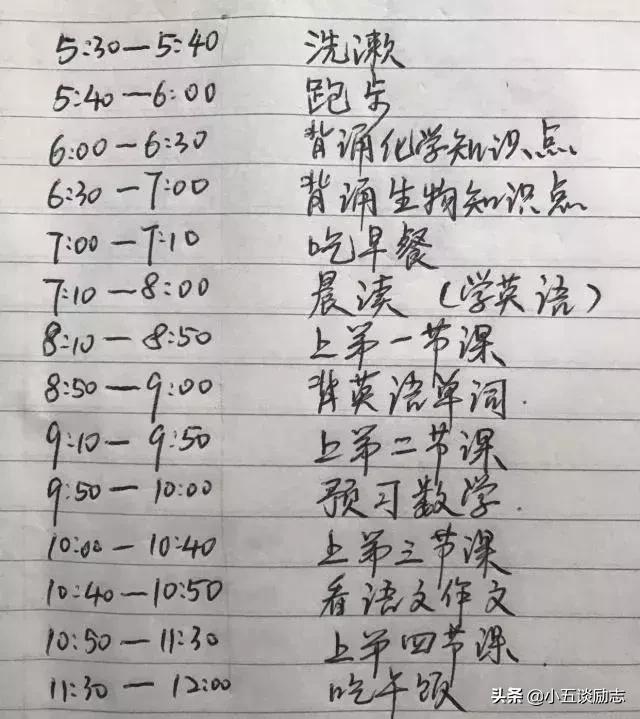 5:30—5:40 洗漱
5:40—6:00 跑步
6:00—6:30 背诵化学知识点
6:30—7:00 背诵生物知识点
7:00—7:10 吃早餐
7:10—8:00 晨读（学英语）
8:10—8:50 上第一节课
8:50—9:00 背英语单词.
9:10—9:50 上第二节课
9:50—10:00 预习数学.
10:00—10:40 上第三节课
10:40—10:50 看语文作文
10:50—11:30 上第四节课.
11:30—12:00 吃午饭
头条 @小五谈励志